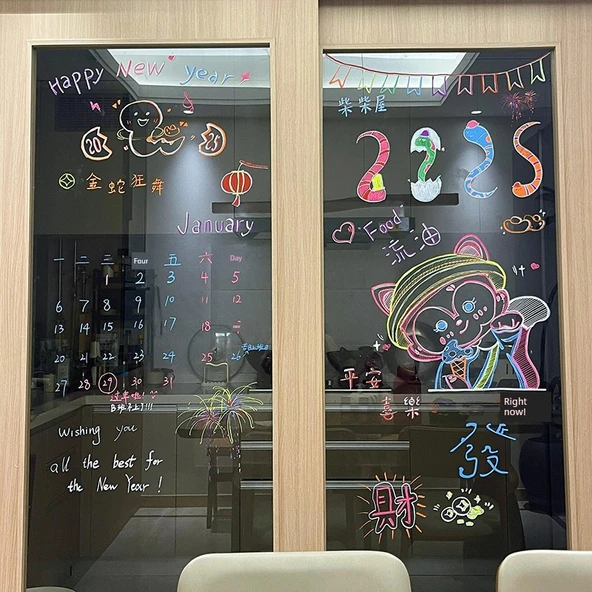 Happy New year
20 25
金蛇狂舞
January
一 二 三 Four 五 六 Day
1 2 3 4 5
6 7 8 9 10 11 12
13 14 15 16 17 18
20 21 22 23 24 25 26
27 28 29 30 31
过年啦!
Wishing you
all the best for
the New Year!
柴柴屋
2025
Food
流油
平安
喜樂
Right
now!
發
財